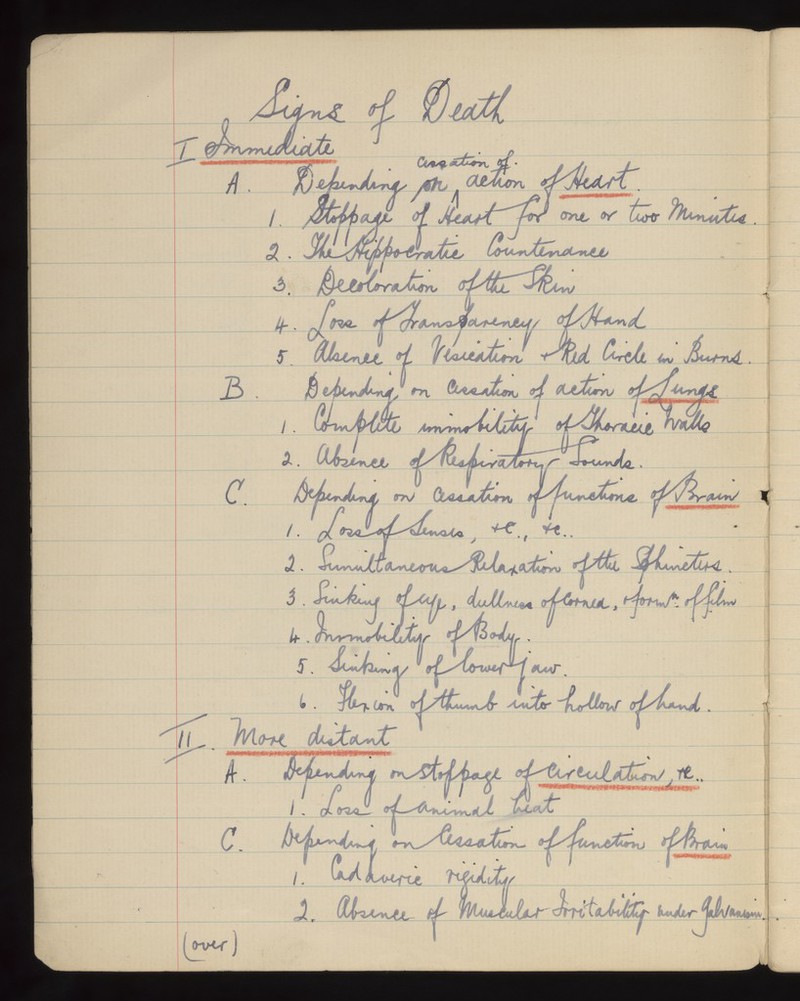 Signs of Death
I Immediate
A. Depending on cessation of action of Heart.
1. Stoppage of Heart for one or two Minutes.
2. The Hippocratic Countenance
3. Decoloration of the Skin
4. Loss of Transparency of Hand
5. Absence of Vesication + Red Circle in Burns.
B. Depending on Cessation of action of Lungs
1. Complete immobility of Thoracic Walls
2. Absence of Respiratory Sounds.
C. Depending on Cessation of functions of Brain
1. Loss of Senses, &c., &c..
2. Simultaneous Relaxation of the Sphincters.
3. Sinking of eye, dullness of Cornea, & formn. of film
4. Immobility of Body.
5. Sinking of lower jaw.
6. Flexion of thumb into hollow of hand.
II. More distant
A. Depending on stoppage of circulation, &c..
1. Loss of animal heat
C. Depending on Cessation of function of Brain
1. Cadaveric rigidity
2. Absence of Muscular Irritability under Galvanism.
(over)